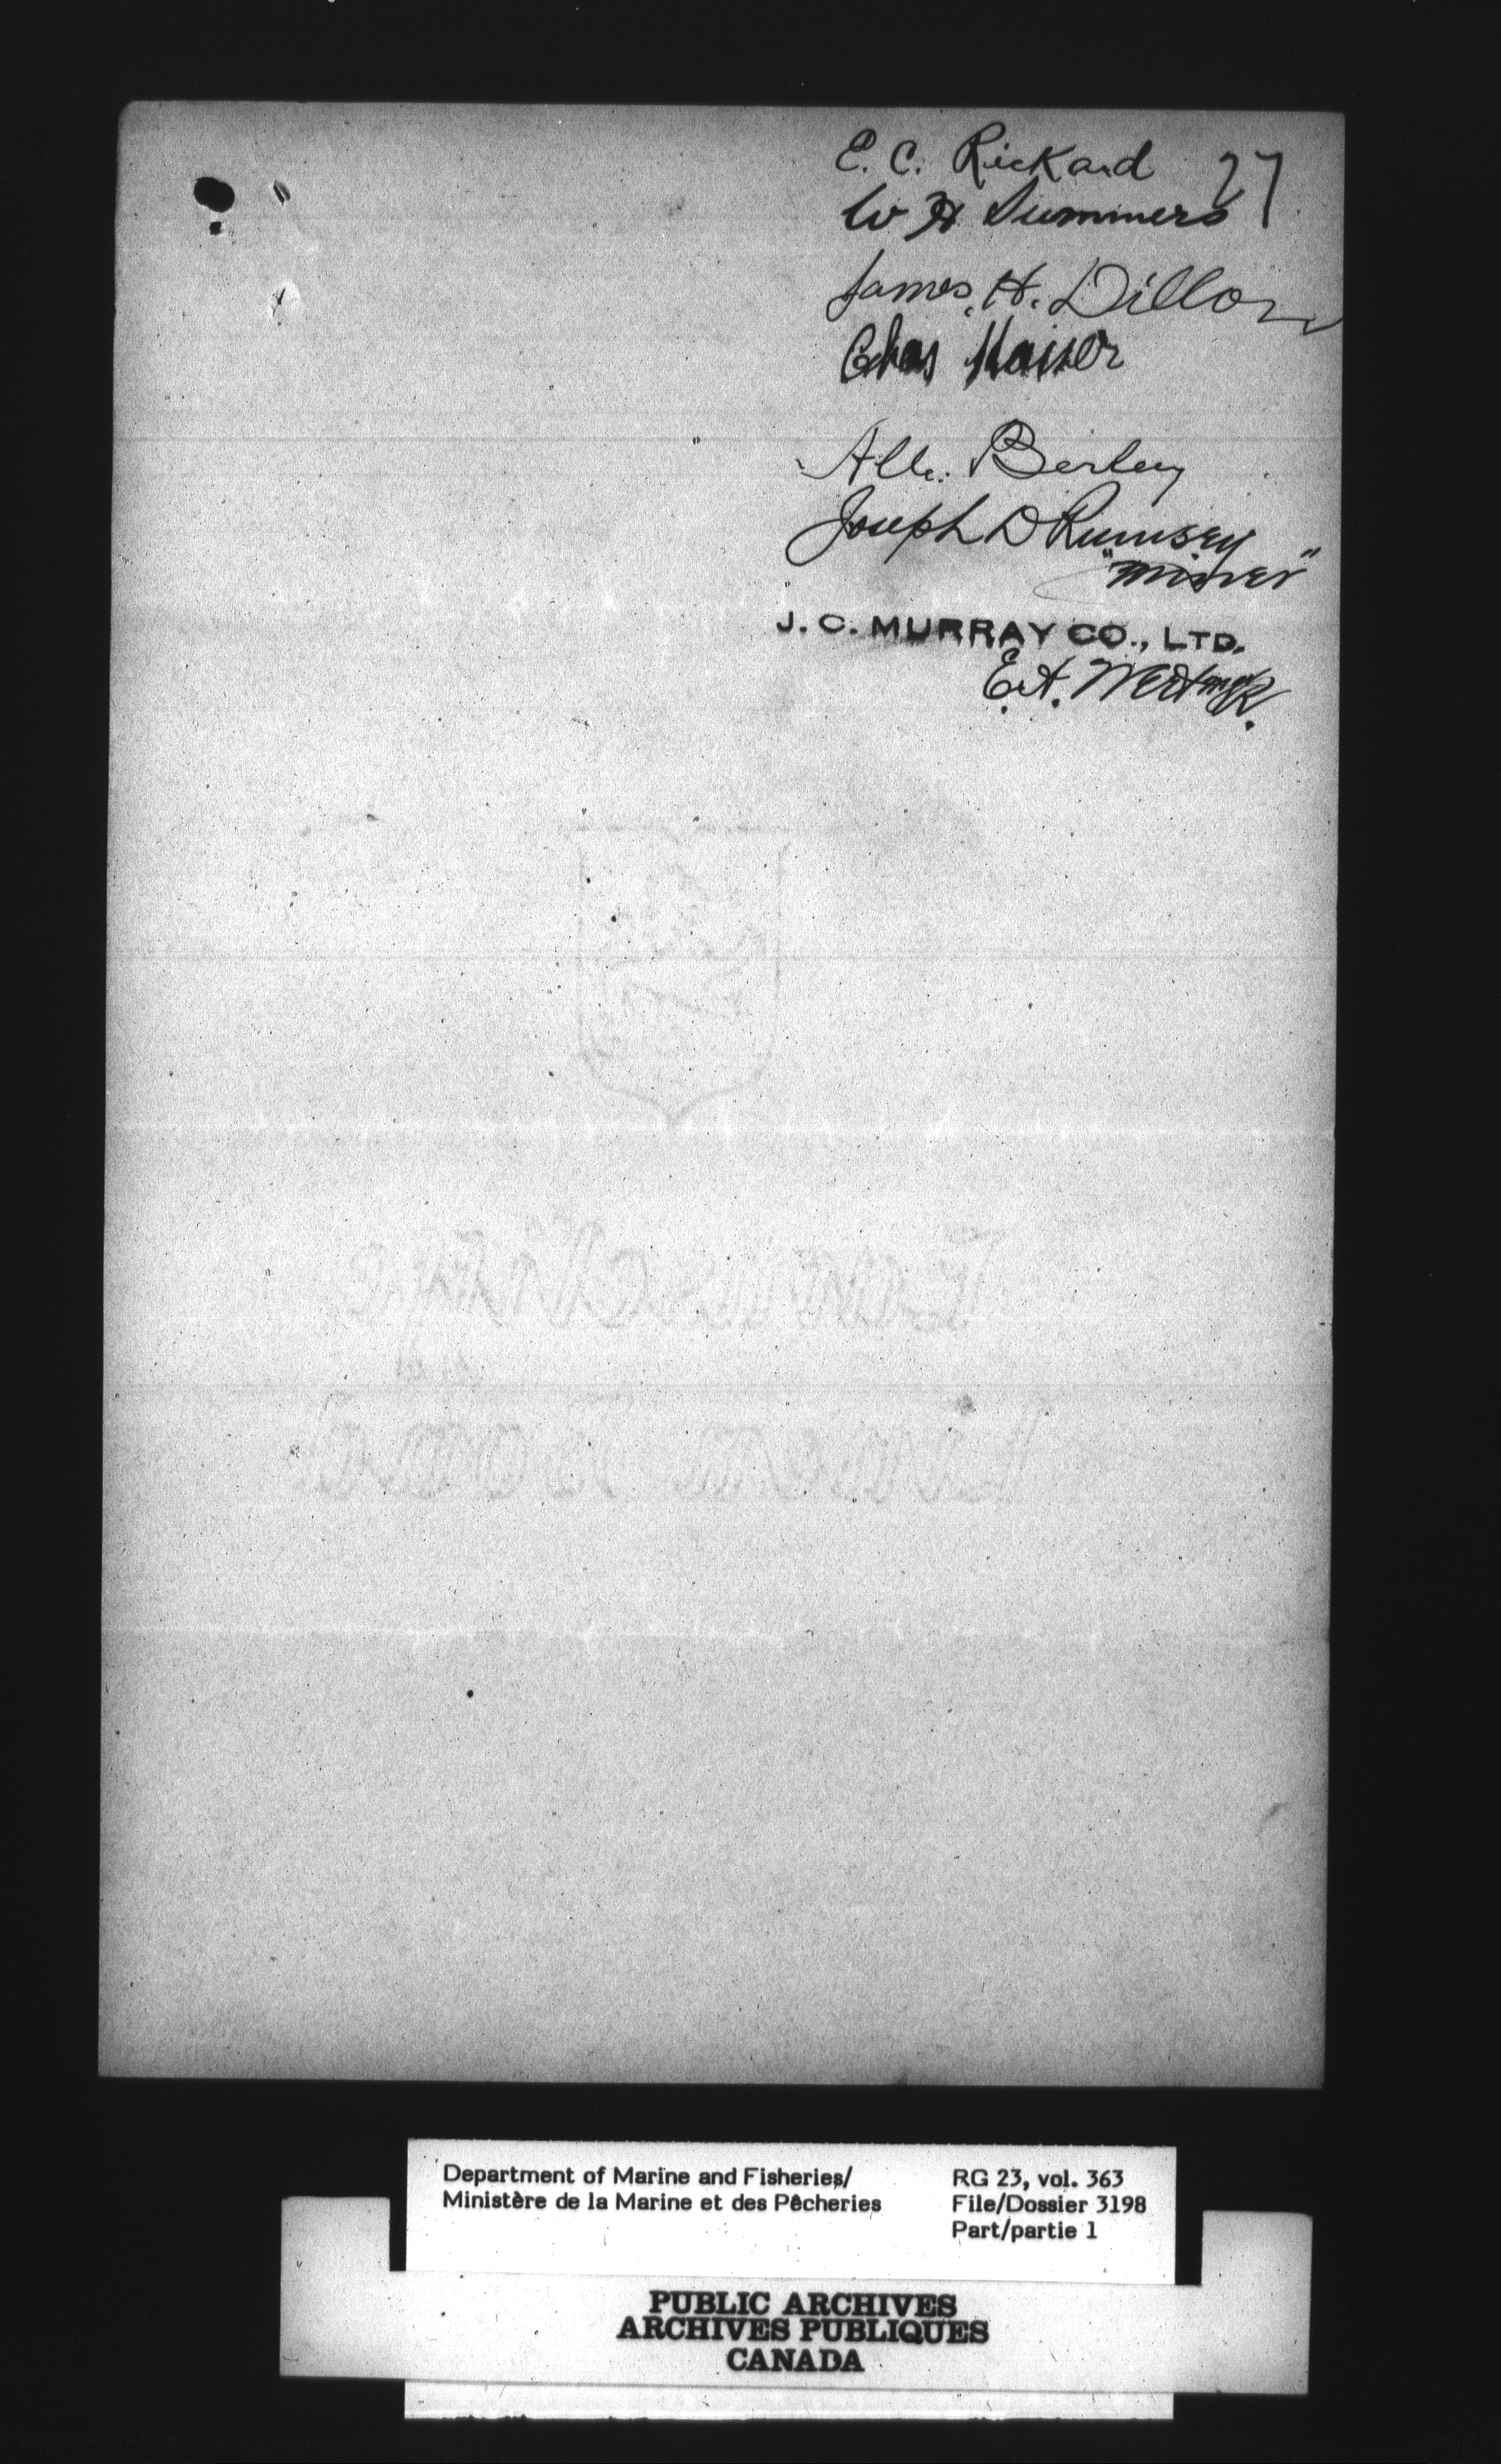 E. C. Rickard
27
W H Summers
James. H. Dillon
Chas Kaiser
Berley
Joseph D Rumsey
"miner"
J. C. MURRAY CO., LTD.
Department of Marine and Fisheries/
Ministère de la Marine et des Pêcheries
RG 23, vol. 363
File/Dossier 3198
Part/partie 1
PUBLIC ARCHIVES
ARCHIVES PUBLIQUES
CANADA